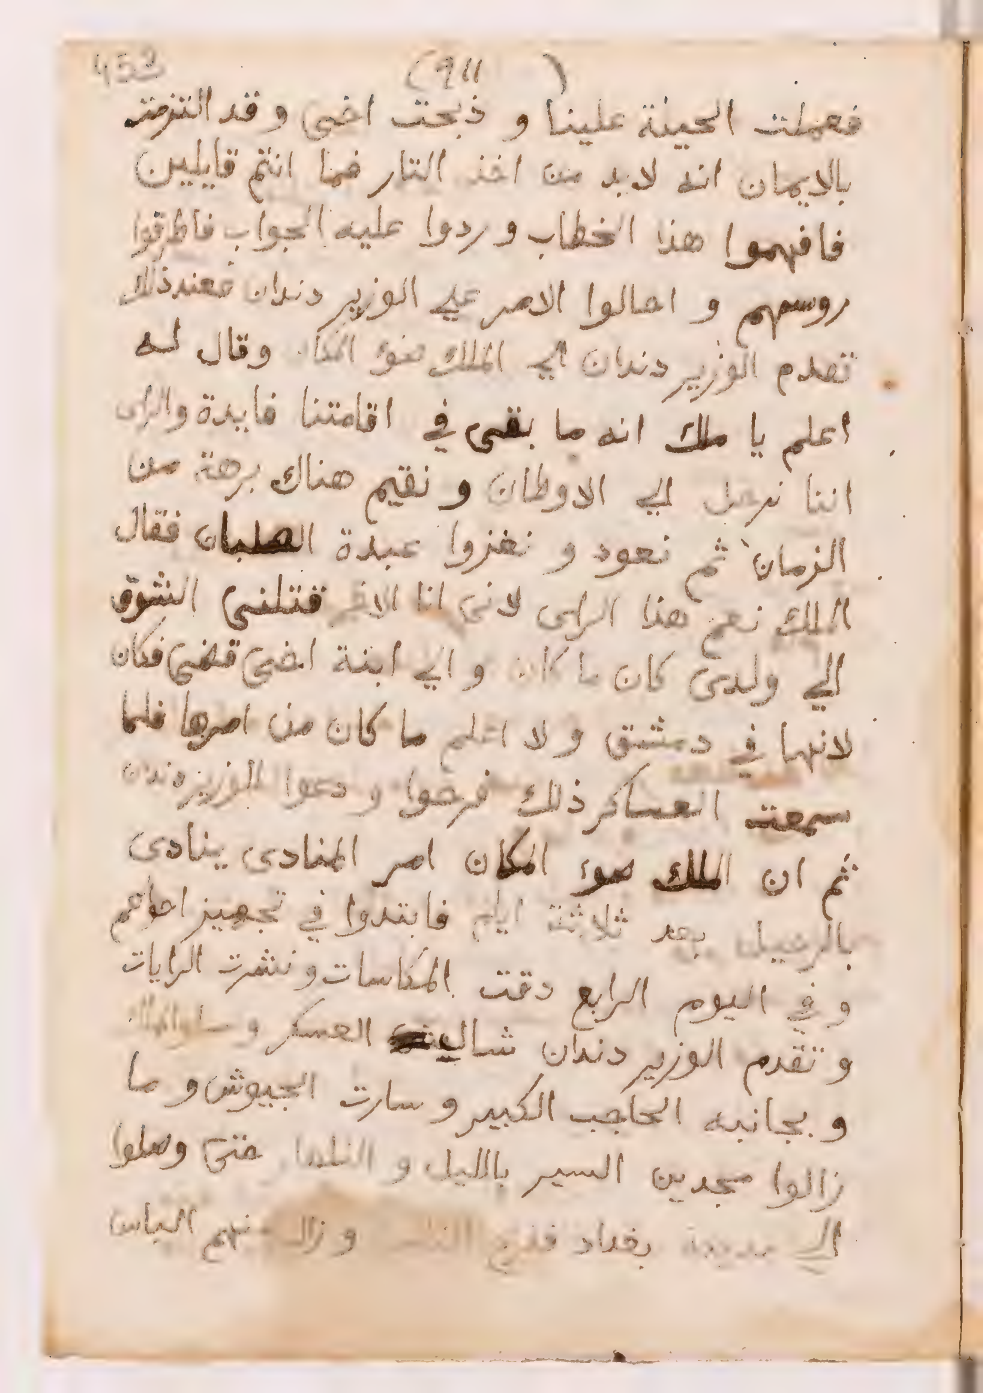 453
(911 )
فعملت الحيلة علينا و ذبحت اخى و قد التزمت
بالايمان انه لابد من اخذ التار فما انتم قايلين
فافهموا هذا الخطاب و ردوا عليه الجواب فاطرقوا
روسهم و احالوا الامر علي الوزير دندان فعند ذلك
تقدم الوزير دندان الي الملك ضوء المكان وقال له
اعلم يا ملك انه ما بقى في اقامتنا فايدة والراى
اننا نرحل الي الاوطان و نقيم هناك برهة من
الزمان ثم نعود و نغزوا عبدة الصلبان فقال
الملك نعم هذا الراى لانى انا الاخر قتلنى الشوق
الي ولدى كان ما كان و الي ابنة اخى قضى فكان
لانها في دمشق و لا اعلم ما كان من امرها فلما
سمعت العساكر ذلك فرحوا و دعوا للوزير دندان
ثم ان الملك ضوء المكان امر المنادى ينادى
بالرحيل بعد ثلاثة ايام فابتدوا في تجهيز احوالهم
و في اليوم الرابع دقت الكاسات و نشرت الرايات
و تقدم الوزير دندان العسكر و سار الملك
و بجانبه الحاجب الكبير و سارت الجيوش و ما
زالوا مجدين السير بالليل و النهار حتى وصلوا
الي مدينة بغداد ففرح الناس و زال عنهم الباس